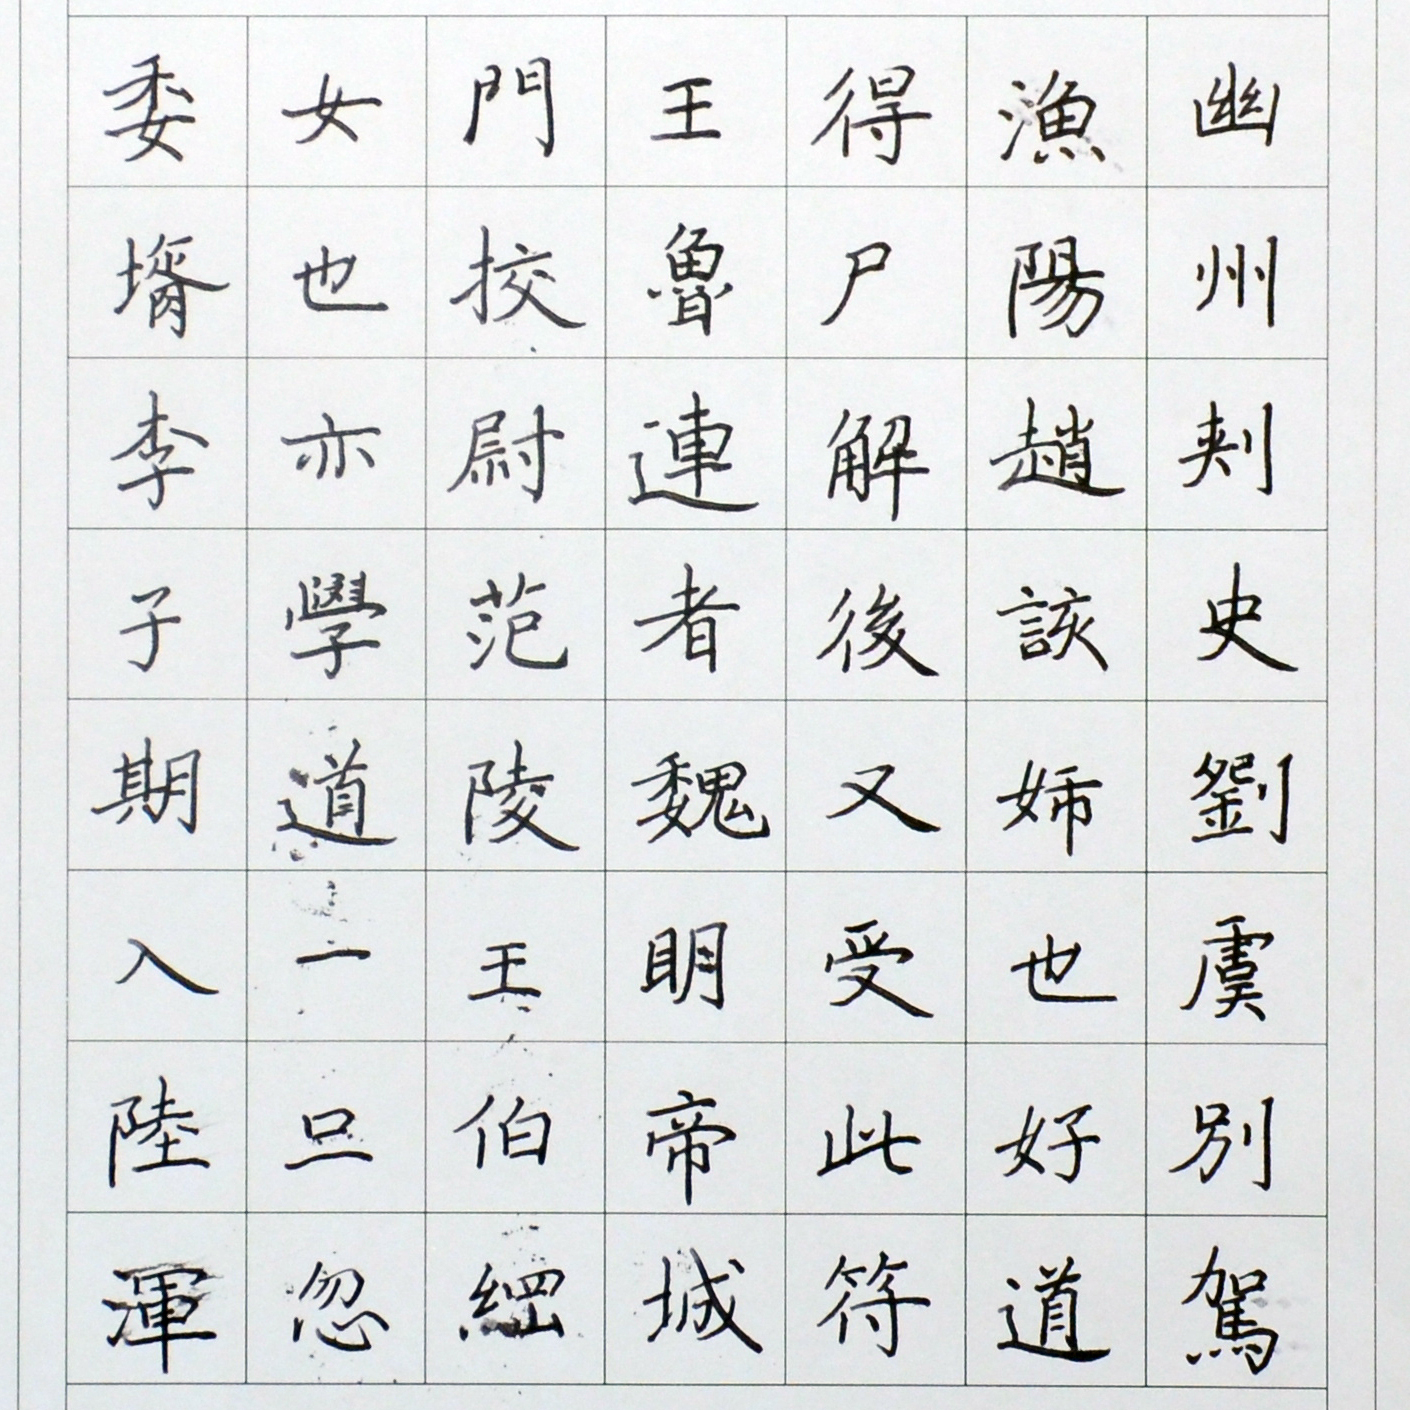 幽州刾史劉虞別駕
漁陽趙該姉也好道
得尸解後又受此符
王魯連者魏明帝城
門挍尉范陵王伯綱
女也亦學道一旦忽
委壻李子期入陸渾